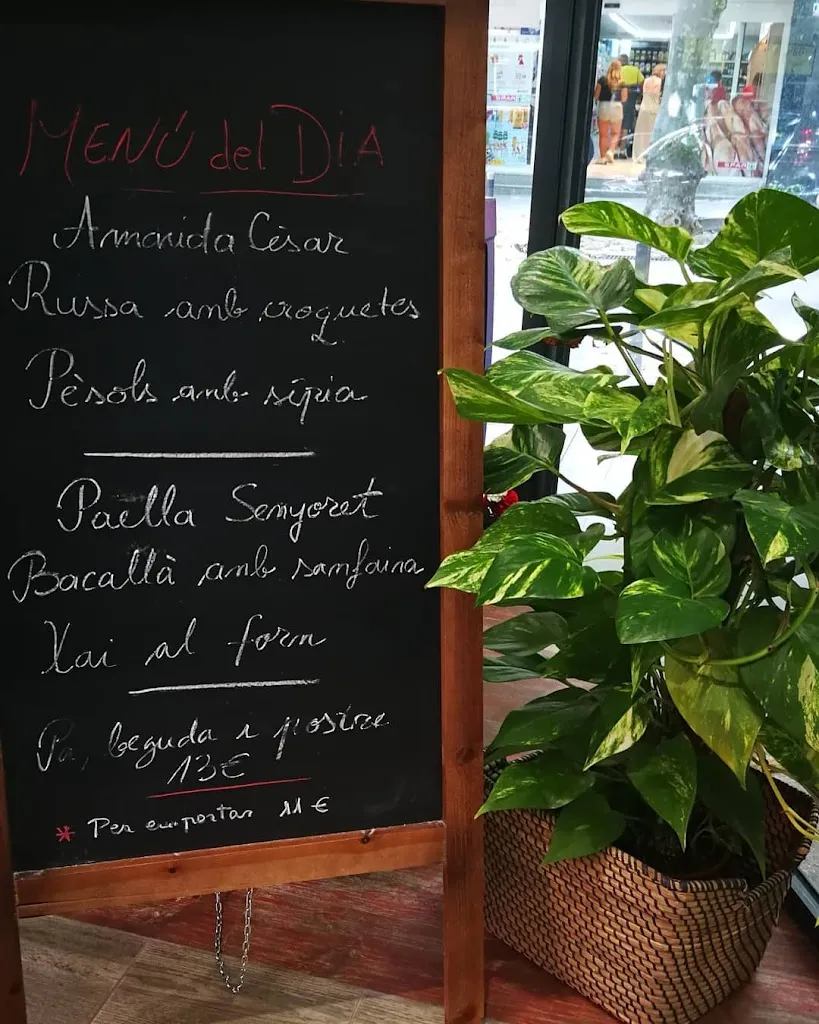 MENÚ del DIA
Amanida Cèsar
Russa amb croquetes
Pèsols amb sípia
Paella Senyoret
Bacallà amb samfaina
Xai al forn
Pa, beguda i postre
13€
* Per emportar 11 €